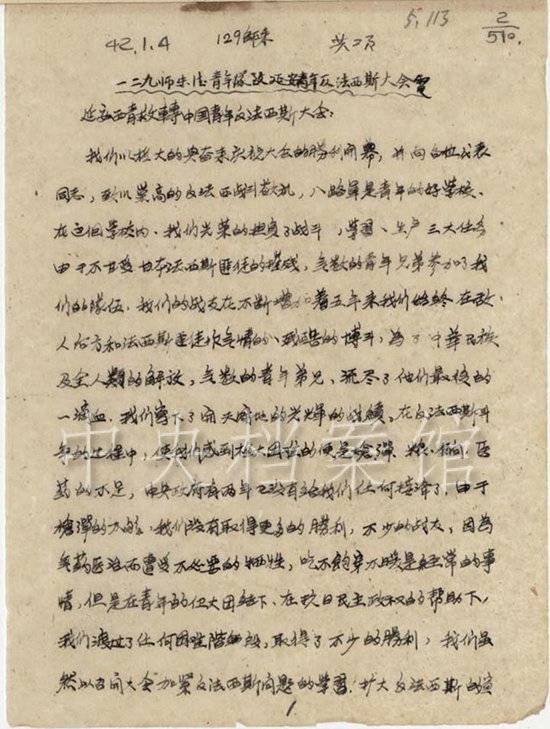 5.113
2
510.
42.1.4 129师来
一二九师朱德青年队致延安青年反法西斯大会电
延安西青救转中国青年反法西斯大会:
我们以极大的兴奋来庆祝大会的胜利开幕,并向各地代表
同志,致以崇高的反法西战斗敬礼,八路军是青年的好学校、
在这个学校内、我们光荣的担负了战斗,学习、生产三大任务
由于不甘受日本法西斯匪徒的残,无数的青年兄弟参加了我
们的队伍,我们的战友在不断增加着五年来我们始终在敌
人后方和法西斯匪徒作无情的、残酷的博斗,为了中华民族
及全人类的解放,无数的青年弟兄、流尽了他们最后的
一滴血,我们写了开天的光辉的战绩、在反法西斯斗
争的过程中,使我们感到极大困难的便是枪弹、粮、饷、医
药的不足,中央政府有两年已没有给我们任何接济了,由于
枪弹的不够、我们没有取得更多的胜利,不少的战友,因为
无药医治而遭受不必要的牺牲,吃不饱穿不暖是经常的事
情,但是在青年的伟大团结下、在抗日民主政权的帮助下,
我们渡过了任何困难阶段,取得了不少的胜利,我们虽
然以召开大会加紧反法西斯问题的学习!扩大反法西斯的宣
1
中央档案馆